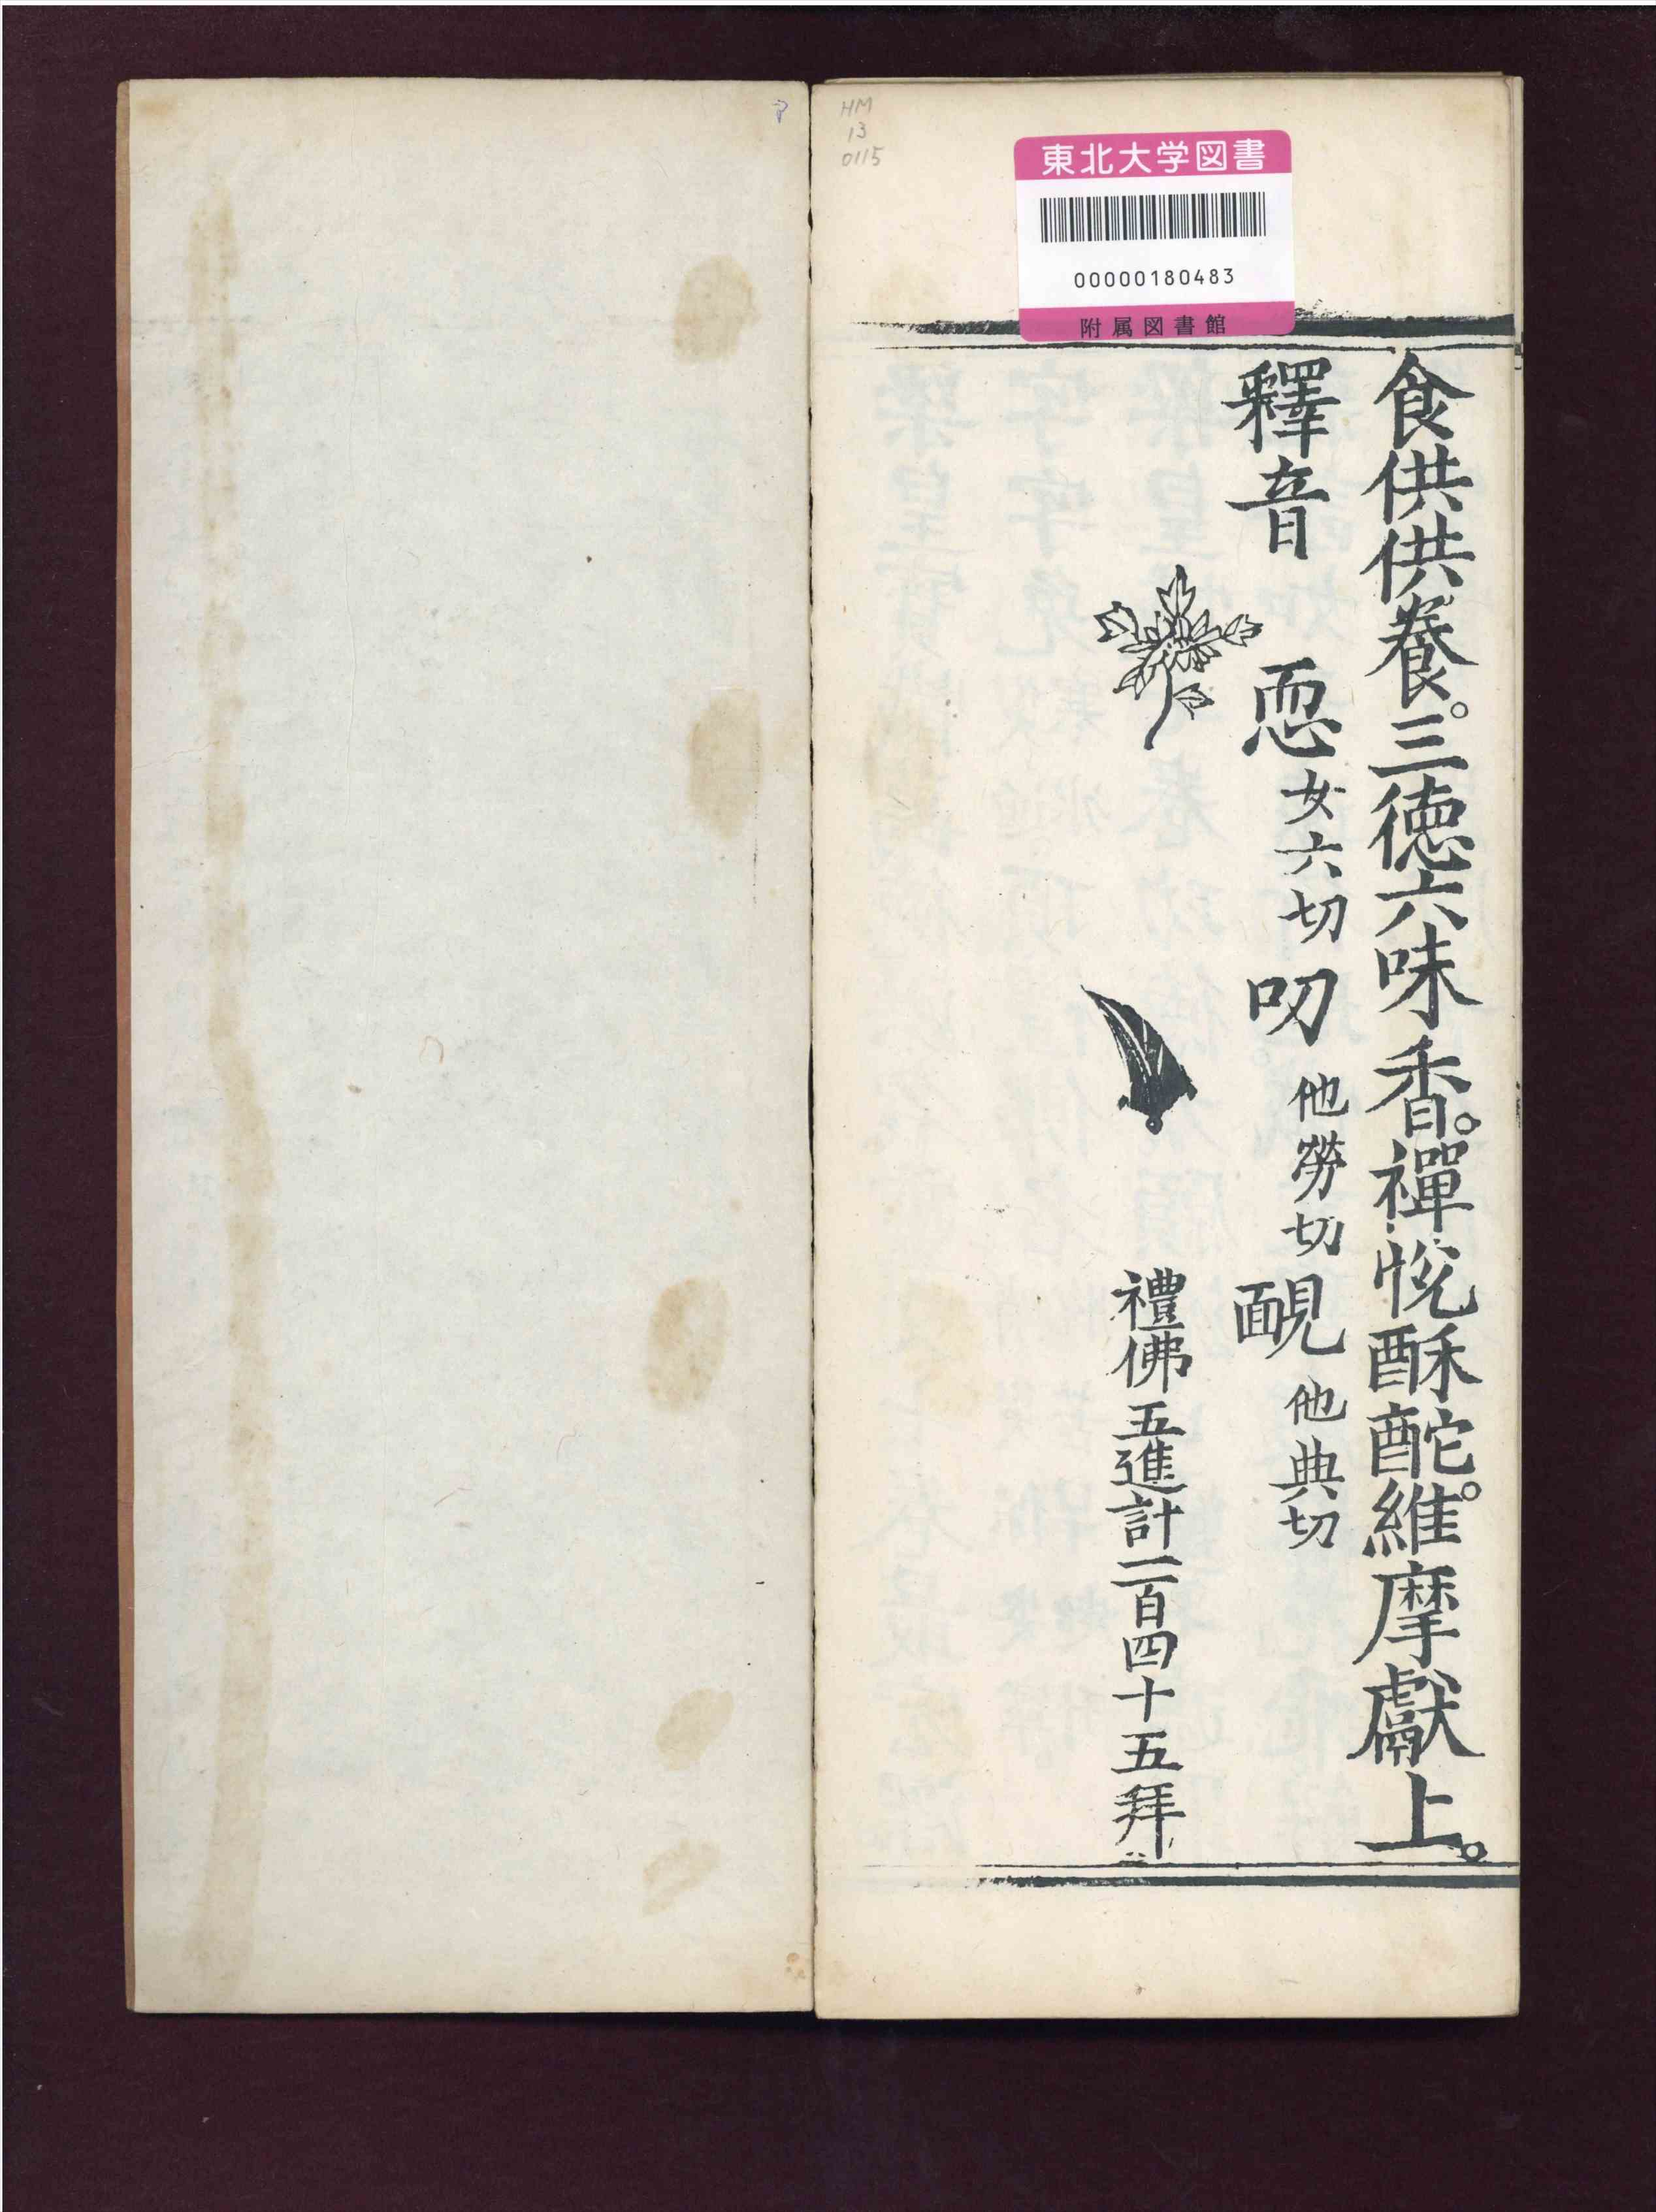 HM
13
0115
東北大学図書
00000180483
附属図書館
食供供養。三德六味香。禪悅酥酡。維摩獻上。
釋音 恧 女六切 叨 他勞切 靦 他典切
禮佛五進計二百四十五拜